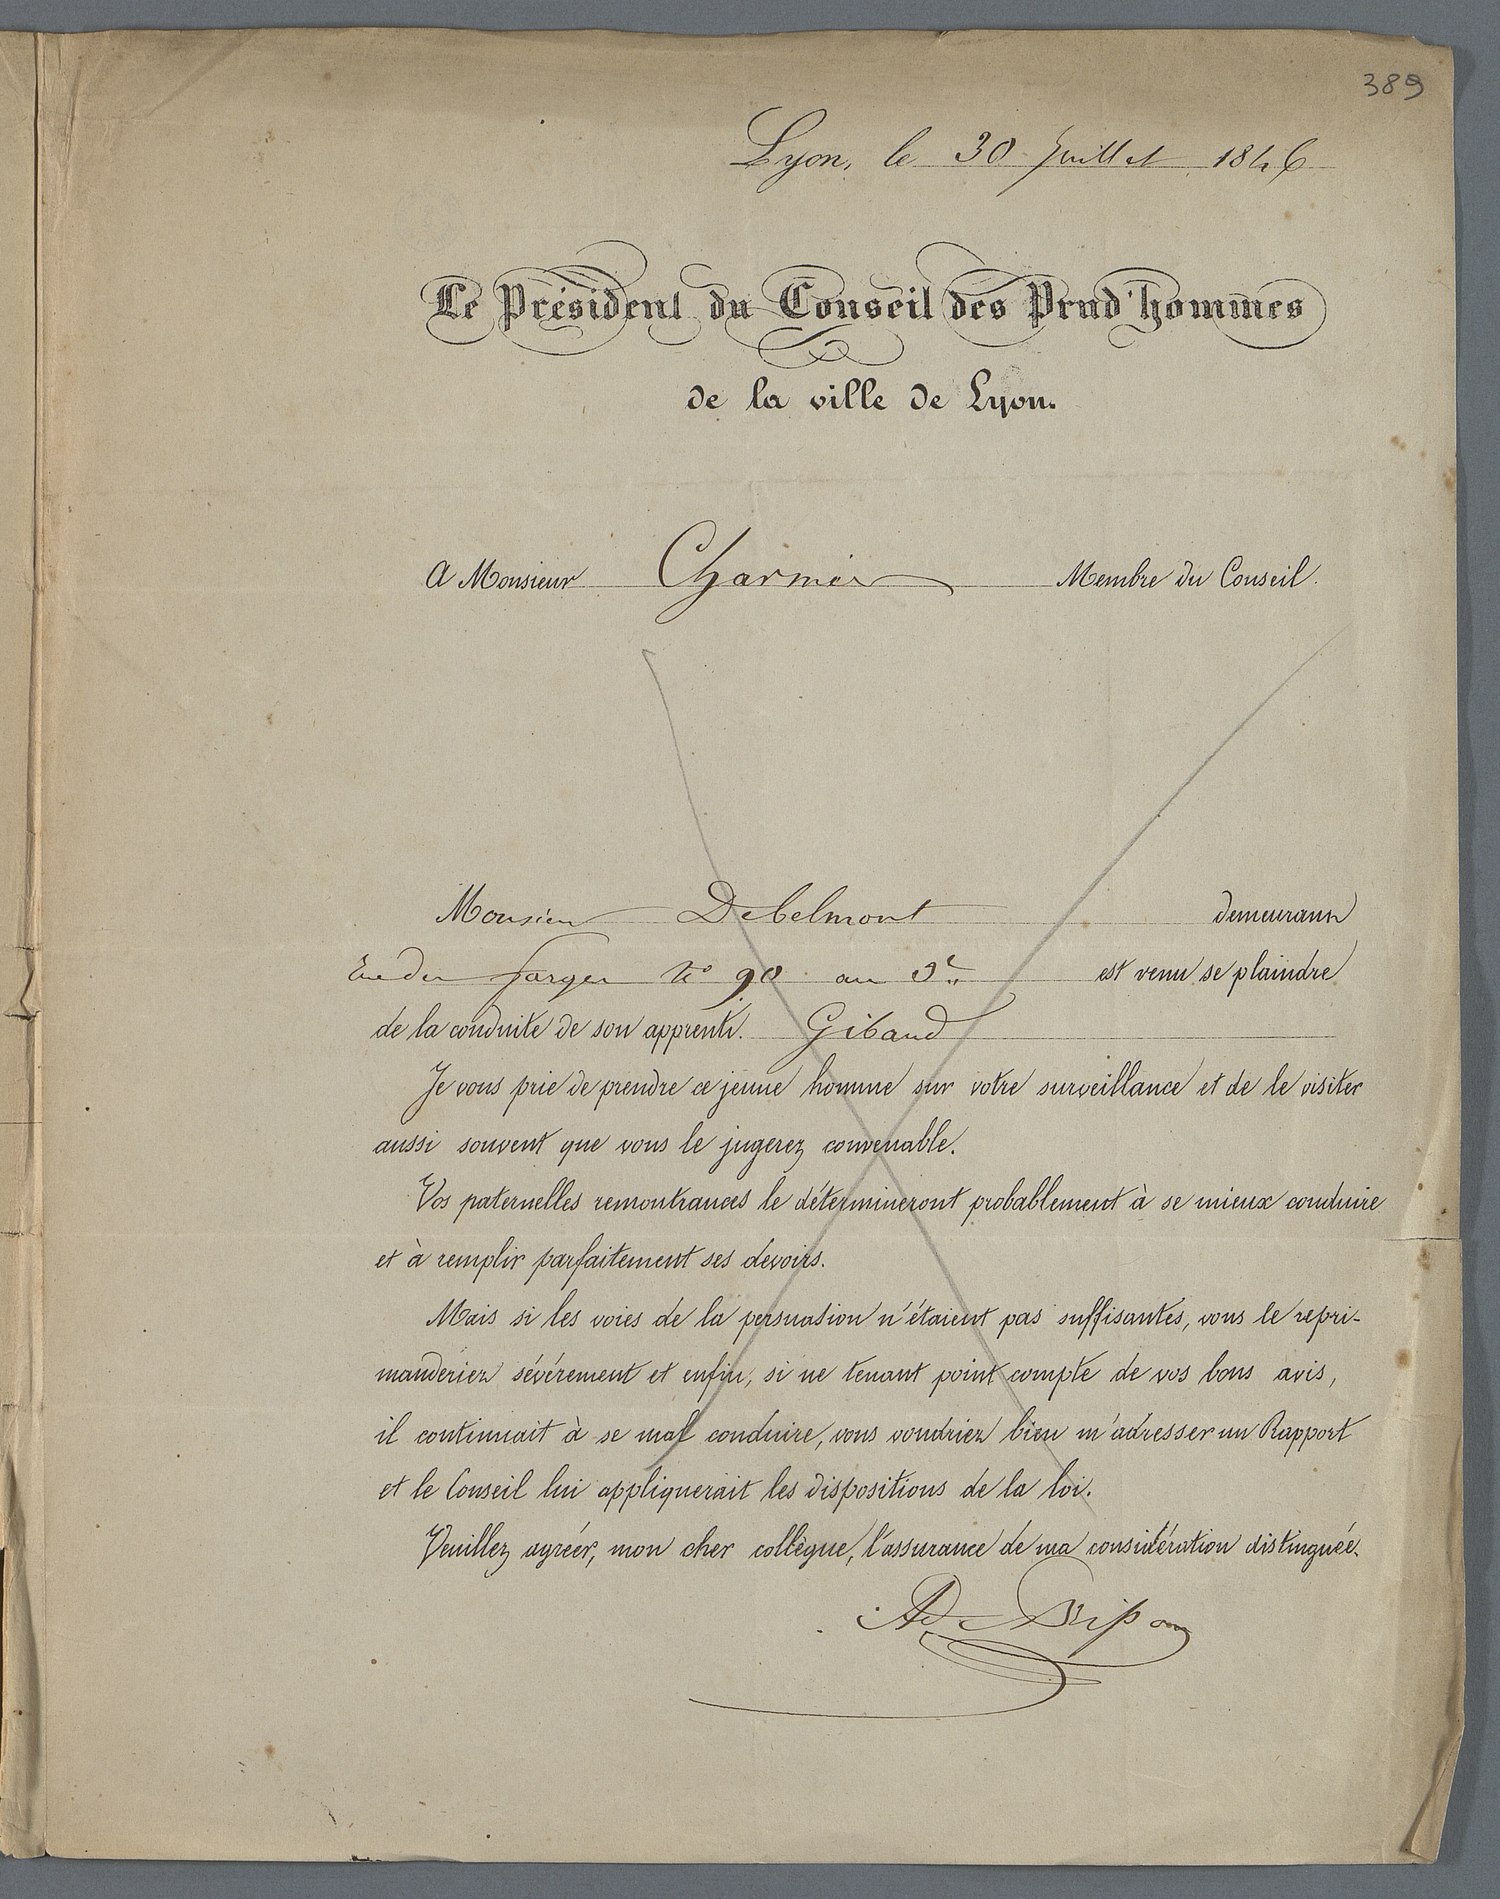 389
Lyon, le 30 Juillet 1846
Le Président du Conseil des Prud'hommes
de la ville de Lyon.
A Monsieur Charnier Membre du Conseil.
Monsieur Debelmont demeurant
Rue des Farges N° 90 au 3e est venu se plaindre
de la conduite de son apprenti. Gibaud
Je vous prie de prendre ce jeune homme sur votre surveillance et de le visiter
aussi souvent que vous le jugerez convenable.
Vos paternelles remontrances le détermineront probablement à se mieux conduire
et à remplir parfaitement ses devoirs.
Mais si les voies de la persuasion n'étaient pas suffisantes, vous le repri-
manderiez sévérement et enfin, si ne tenant point compte de vos bons avis,
il continuait à se mal conduire, vous voudriez bien m'adresser un Rapport
et le Conseil lui appliquerait les dispositions de la loi.
Veuillez agréer, mon cher collègue, l'assurance de ma considération distinguée.